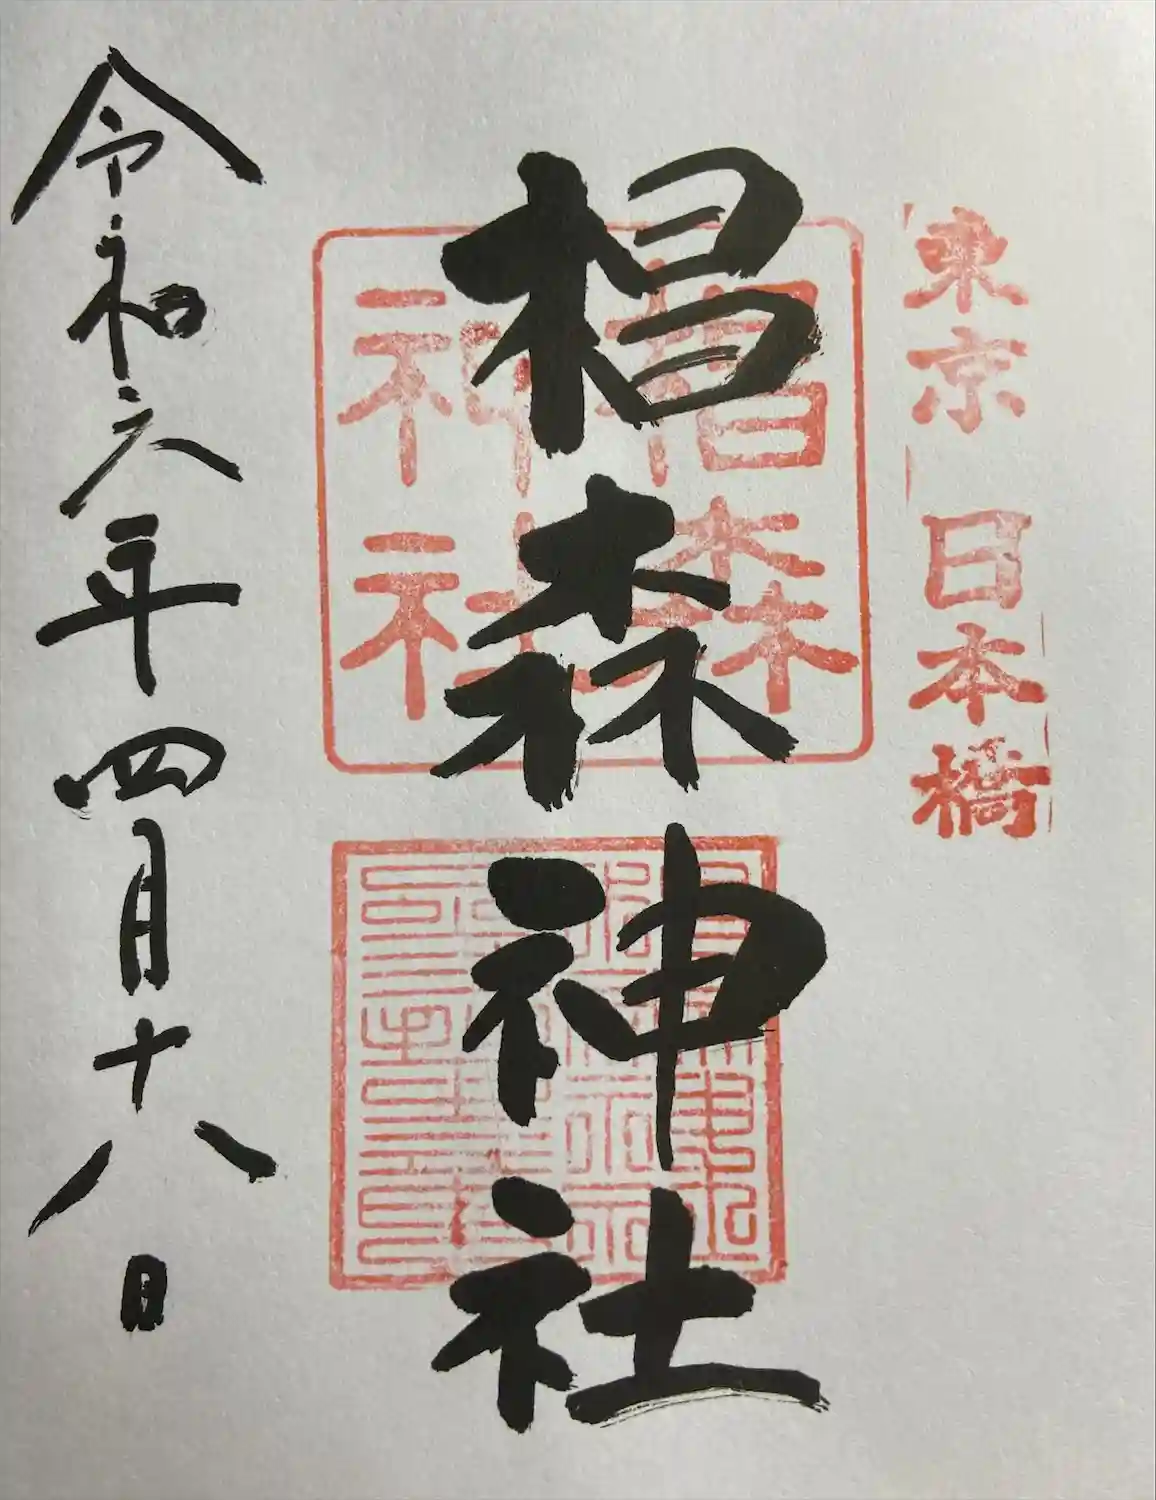 東京 日本橋
椙森神社
椙森
神社
令和六年四月十八日